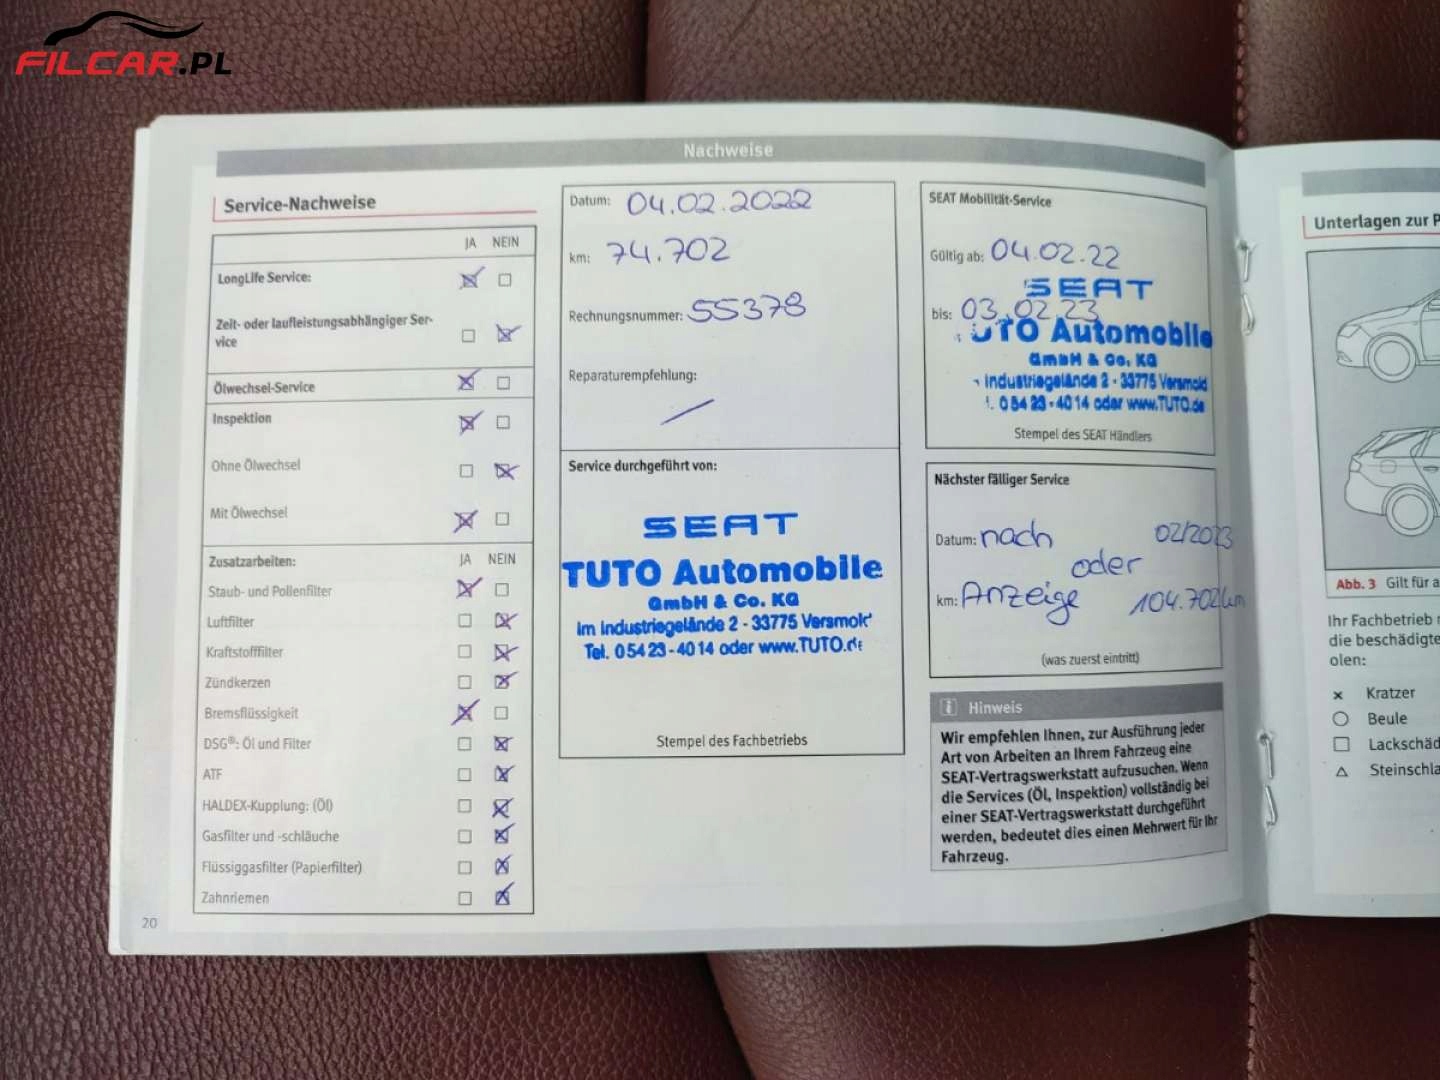 FILCAR.PL
Nachweise
Service-Nachweise
JA NEIN
LongLife Service:
Zeit- oder laufleistungsabhängiger Ser-
vice
Ölwechsel-Service
Inspektion
Ohne Ölwechsel
Mit Ölwechsel
Zusatzarbeiten: JA NEIN
Staub- und Pollenfilter
Luftfilter
Kraftstofffilter
Zündkerzen
Bremsflüssigkeit
DSG®: Öl und Filter
ATF
HALDEX-Kupplung: (Öl)
Gasfilter und -schläuche
Flüssiggasfilter (Papierfilter)
Zahnriemen
20
Datum: 04.02.2022
km: 74.702
Rechnungsnummer: 55378
Reparaturempfehlung:
Service durchgeführt von:
SEAT
TUTO Automobile
GmbH & Co. KG
Im Industriegelände 2 - 33775 Versmold
Tel. 05423-4014 oder www.TUTO.de
Stempel des Fachbetriebs
SEAT Mobilität-Service
Gültig ab: 04.02.22
SEAT
bis: 03.02.23
TUTO Automobile
GmbH & Co. KG
Industriegelände 2 - 33775 Versmold
05423-4014 oder www.TUTO.de
Stempel des SEAT Händlers
Nächster fälliger Service
Datum: nach 02/2023
oder
km: Anzeige 104.702km
(was zuerst eintritt)
i Hinweis
Wir empfehlen Ihnen, zur Ausführung jeder
Art von Arbeiten an Ihrem Fahrzeug eine
SEAT-Vertragswerkstatt aufzusuchen. Wenn
die Services (Öl, Inspektion) vollständig bei
einer SEAT-Vertragswerkstatt durchgeführt
werden, bedeutet dies einen Mehrwert für Ihr
Fahrzeug.
Unterlagen zur P
Abb. 3 Gilt für a
Ihr Fachbetrieb
die beschädigte
olen:
Kratzer
Beule
Lackschäd
Steinschla